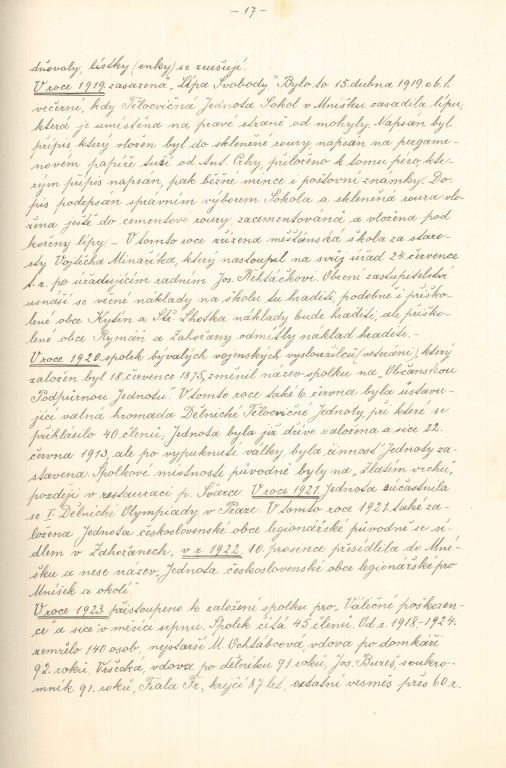 - 17 -
důvody, lístky (enky) se zrušují.
V roce 1919. zasazena „Lípa Svobody." Bylo to 15. dubna 1919. o 6. h
večerní, kdy Tělocvičná Jednota Sokol v Mníšku zasadila lípu,
která je umístěna na pravé straně od mohyly. Napsán byl
přípis, který vložen byl do skleněné roury, napsán na pergame-
novém papíře tuší od Ant. Cihy, přiloženo k tomu péro, kte-
rým přípis napsán, pak běžné mince i poštovní známky. Do-
pis podepsán správním výborem Sokola a skleněná roura vlo-
žena ještě do cementové roury, zacementovaná a vložena pod
kořeny lípy. - V tomto roce zřízena měšťanská škola za staro-
sty Vojtěcha Minaříka, který nastoupil na svůj úřad 24. července
t. r. po úřadujícím radním Jos. Řehtáčkovi. Obecní zastupitelství
usnáší se věcné náklady na školu tu hraditi, podobně i přiško-
lené obce Kytín a Stš. Lhotka náklady bude hraditi, ale přiško-
lené obce Rymáň a Zahořany odmítly náklad hraditi. -
V roce 1920. spolek bývalých vojenských vysloužilců (veteráni), který
založen byl 18. července 1875, změnil název spolku na „Občanskou
Podpůrnou Jednotu". V tomto roce také 6. června byla ustavu-
jící valná hromada Dělnické Tělocvičné Jednoty, při které se
přihlásilo 40. členů. Jednota byla již dříve založena a sice 22.
června 1913, ale po vypuknutí války, byla činnost Jednoty za-
stavena. Spolkové místnosti původně byly na „Zlatém vrchu",
později v restauraci p. Švarce. V roce 1921. Jednota súčastnila
se I. Dělnické Olympiady v Praze. V tomto roce 1921. také za-
ložena Jednota československé obce legionářské původně se sí-
dlem v Zahořanech, v r. 1922. 10. prosence přesídlila do Mní-
šku a nese název „Jednota československé obce legionářské pro
Mníšek a okolí."
V roce 1923. přistoupeno k založení spolku pro „Váleční poškozen-
ce" a sice v měsíci srpnu. Spolek čítá 45 členů. Od r. 1918.-1924.
zemřelo 140 osob, nejstarší M. Ochtábcová, vdova po domkáři
92. roků, Vršecká, vdova po dělníku 91 roků, Jos. Bureš, soukro-
mník 91. roků, Fiala Fr., krejčí 87 let, ostatní vesměs přes 60 r.